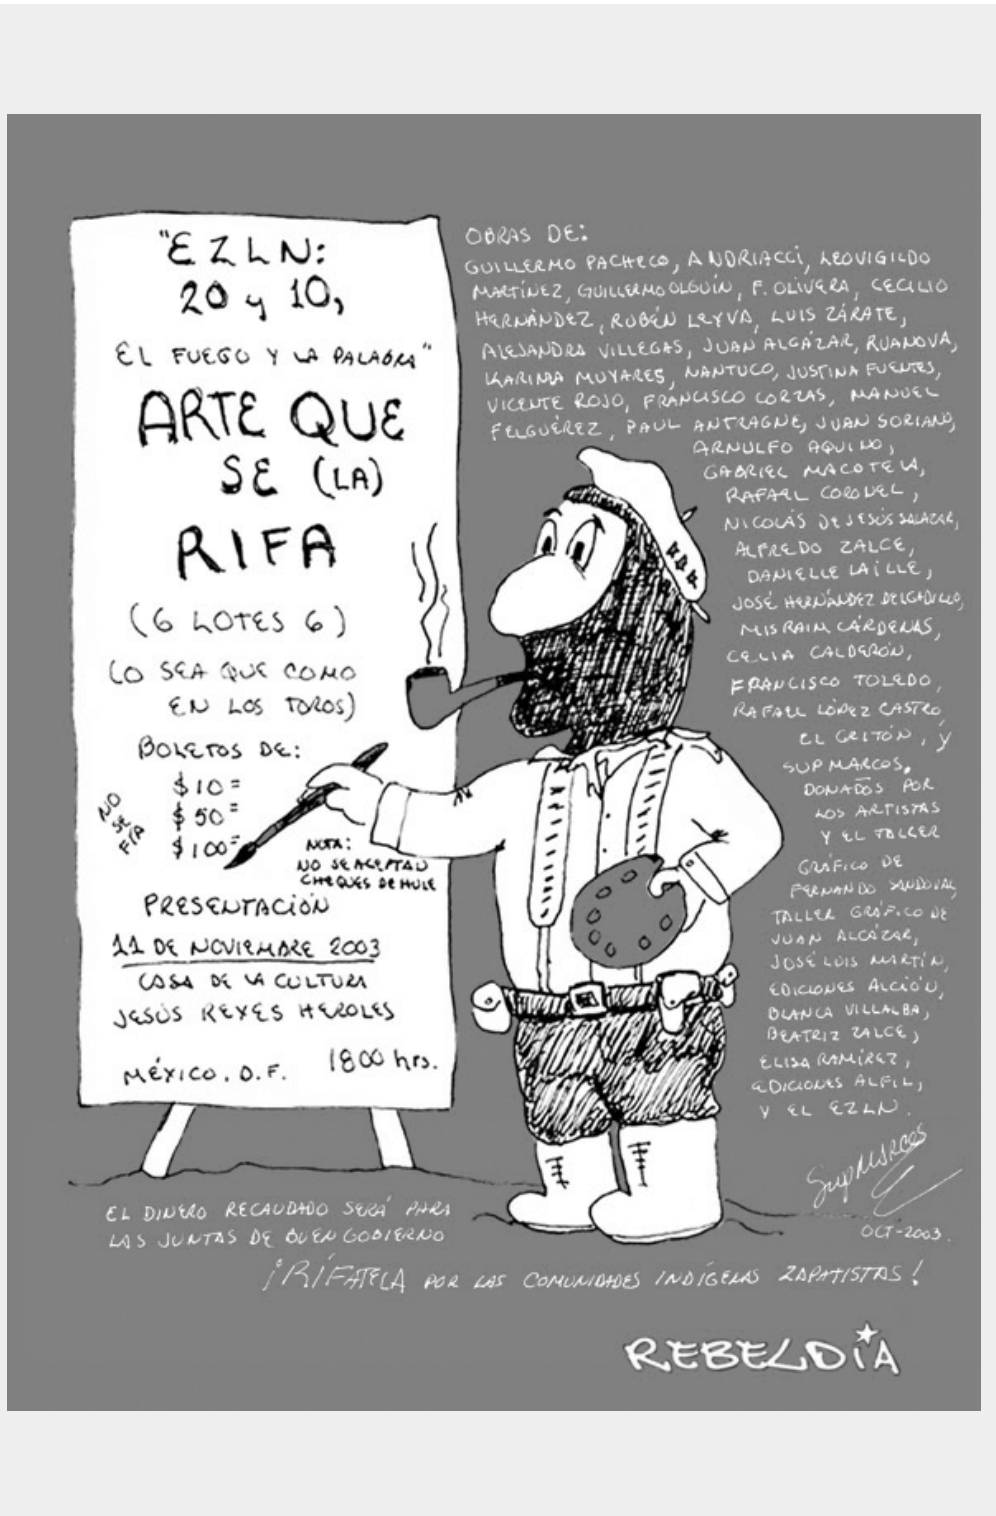 "EZLN:
20 y 10,
EL FUEGO Y LA PALABRA"
ARTE QUE
SE (LA)
RIFA
(6 LOTES 6)
(O SEA QUE COMO
EN LOS TOROS)
BOLETOS DE:
$10=
$50=
$100=
NO
SE
FIA
NOTA:
NO SE ACEPTAN
CHEQUES DE HULE
PRESENTACIÓN
11 DE NOVIEMBRE 2003
CASA DE LA CULTURA
JESÚS REYES HEROLES
MÉXICO. D.F. 1800 hrs.
OBRAS DE:
GUILLERMO PACHECO, ANDRIACCI, LEOVIGILDO
MARTÍNEZ, GUILLERMO OLGUÍN, F. OLIVERA, CECILIO
HERNÁNDEZ, RUBÉN LEYVA, LUIS ZÁRATE,
ALEJANDRA VILLEGAS, JUAN ALCÁZAR, RUANOVA,
KARIMA MUYARES, NANTUCO, JUSTINA FUENTES,
VICENTE ROJO, FRANCISCO CORZAS, MANUEL
FELGUÉREZ, PAUL ANTRAGNE, JUAN SORIANO,
ARNULFO AQUINO,
GABRIEL MACOTELA,
RAFAEL CORONEL,
NICOLÁS DE JESÚS SALAZAR,
ALFREDO ZALCE,
DANIELLE LAILLE,
JOSÉ HERNÁNDEZ DELGADILLO,
MISRAIM CÁRDENAS,
CELIA CALDERÓN,
FRANCISCO TOLEDO,
RAFAEL LÓPEZ CASTRO
EL GRITÓN, Y
SUP MARCOS.
DONADOS POR
LOS ARTISTAS
Y EL TALLER
GRÁFICO DE
FERNANDO SANDOVAL,
TALLER GRÁFICO DE
JUAN ALCÁZAR,
JOSÉ LUIS MARTÍN,
EDICIONES ALCIÓN,
BLANCA VILLALBA,
BEATRIZ ZALCE,
ELISA RAMÍREZ,
EDICIONES ALFIL,
Y EL EZLN.
SupMARCOS
OCT-2003.
EL DINERO RECAUDADO SERÁ PARA
LAS JUNTAS DE BUEN GOBIERNO
¡RÍFATELA POR LAS COMUNIDADES INDÍGENAS ZAPATISTAS!
REBELDÍA